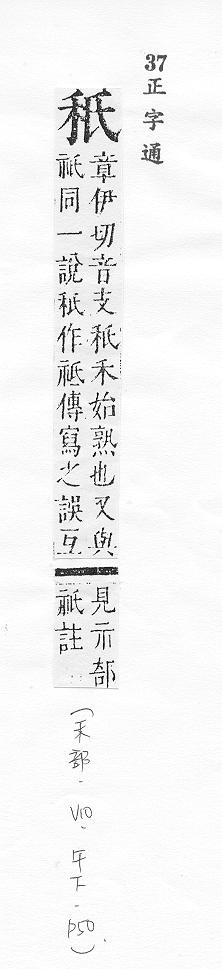 37
正字通
秖
章伊切音支秖禾始熟也又與
祇同一說秖作祗傳寫之誤互
見示部
祇註
(禾部-V10-午下-P50)